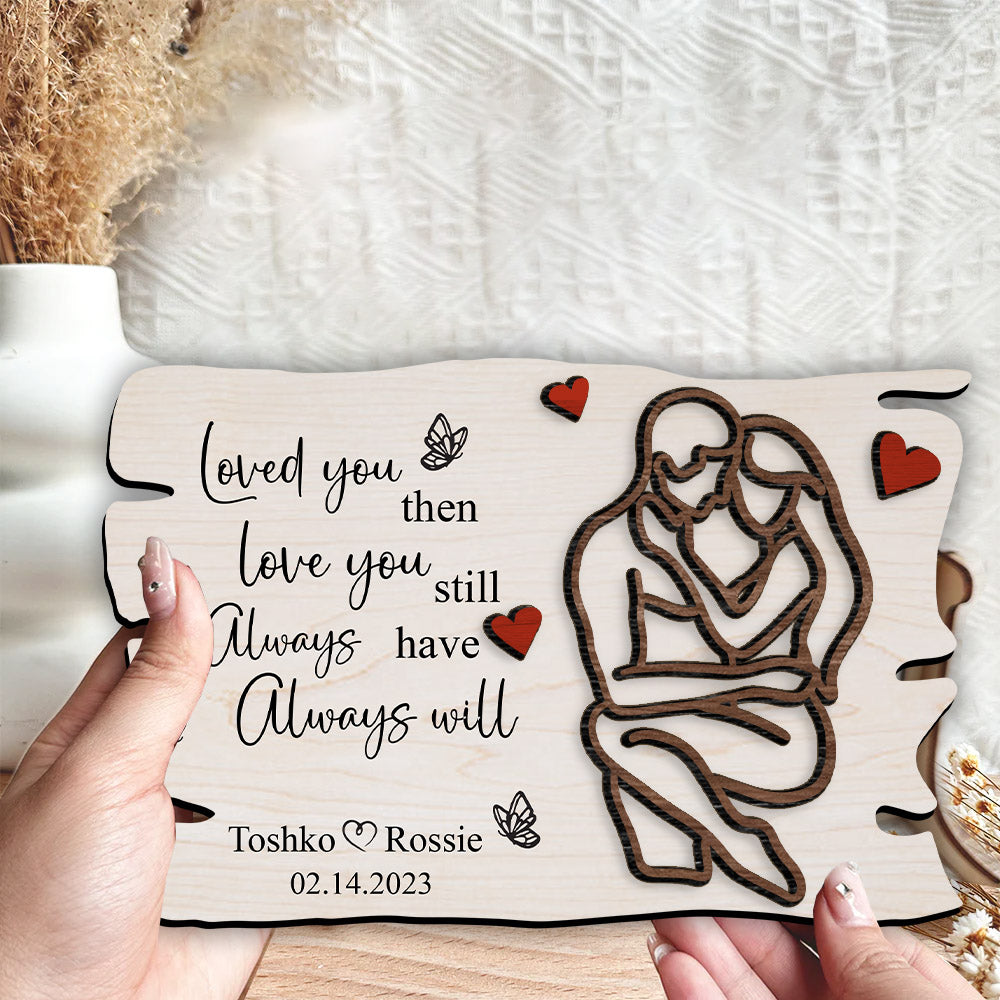 Loved you then
love you still
Always have
Always will
Toshko ♡ Rossie
02.14.2023